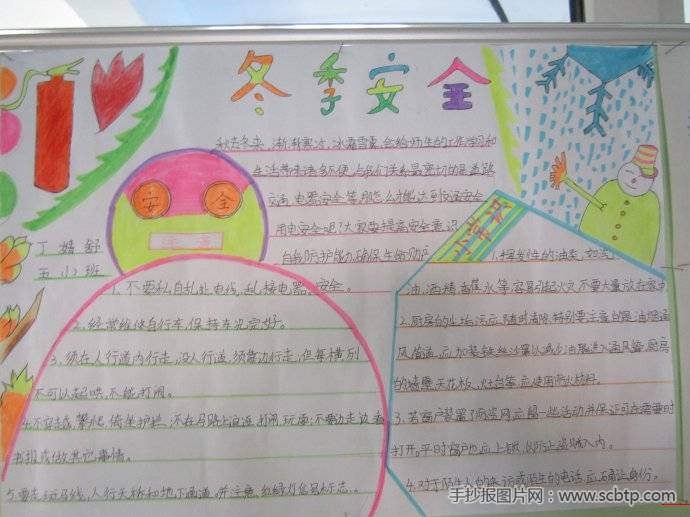 冬季安全
秋去冬来,渐渐寒冷,冰霜雪雾,会给师生的工作学习和
生活带来诸多不便,与我们关系最密切的是道路
交通、电器安全等,那怎么才能达到交通安全
用电安全呢?大家要提高安全意识
自我防护能力,确保生命财产
安 全
注 意
丁婧舒
五(1)班
小常识
1.不要私自乱处电线,乱接电器,安全。
2.经常维修自行车,保持车况完好。
3.须在人行道内行走,没人行道,须靠边行走;但每横列
不可以起哄,不能打闹。
4.不穿越,攀爬,倚坐护栏,不在马路上追逐,打闹,玩耍;不要边走边看
书报或做其它事情。
5.要走斑马线,人行天桥和地下通道。并注意,红绿灯信号标志。
1.挥发性的油类,如汽
油,酒精,香蕉水等容易引起火灾,不要大量放在家中
2.厨房的火垢,污应随时清除,特别要注意的是油烟通
风管道,应加装铁丝沙罩以减少油脂进入通风管,厨房
的墙壁,天花板,灶台等,应使用防火材料。
3.若窗户装置了防盗网,应留一些活动并保证可在需要时
打开。平时窗户应上锁,以防止盗贼入内。
4.对于陌生人的来访或陌生的电话,应不露身份。
手抄报图片网:www.scbtp.com